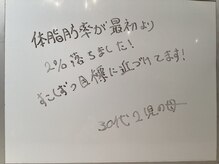 体脂肪率が最初より
2%落ちました!
すこしずつ目標に近づいてます!
30代2児の母